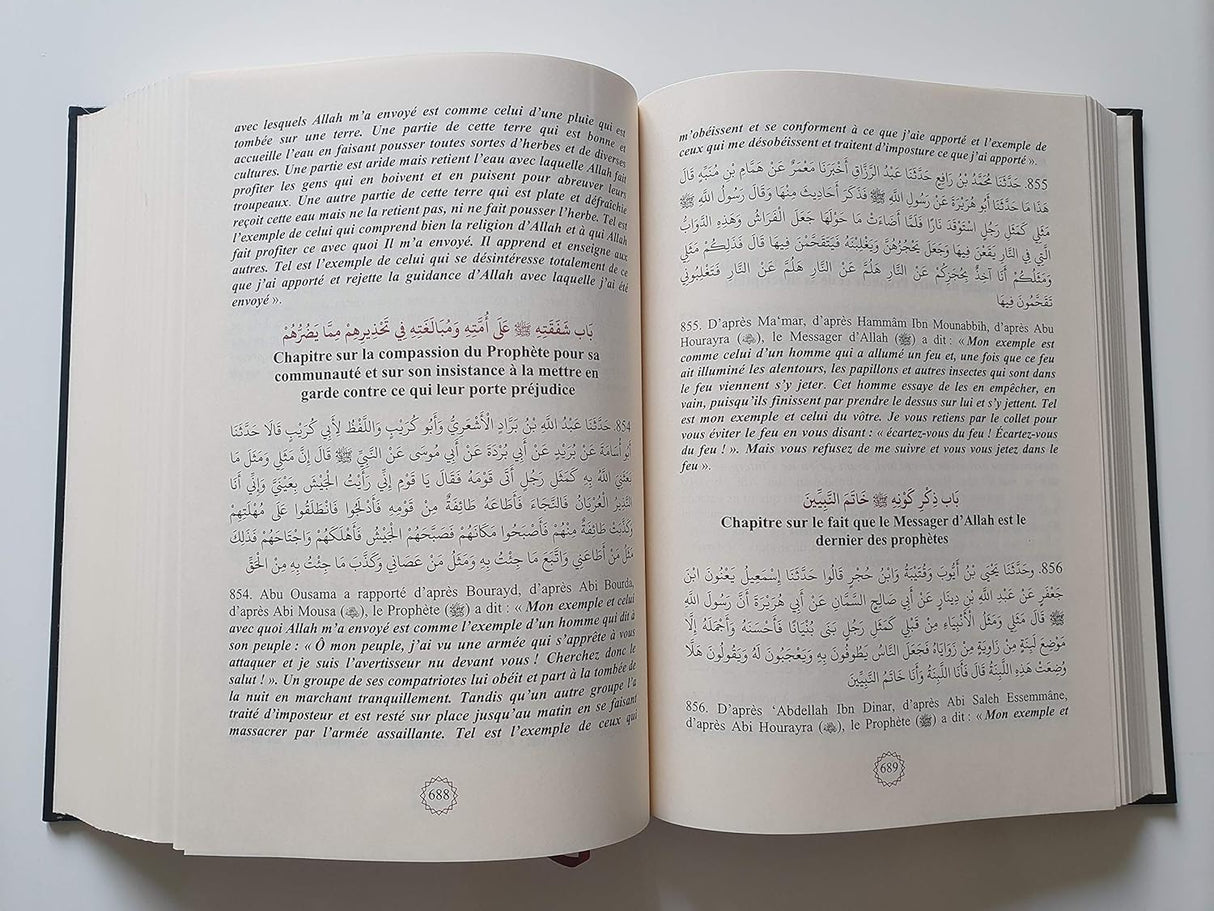 avec lesquels Allah m'a envoyé est comme celui d'une pluie qui est
tombée sur une terre. Une partie de cette terre qui est bonne et
accueille l'eau en faisant pousser toutes sortes d'herbes et de diverses
cultures. Une partie est aride mais retient l'eau avec laquelle Allah fait
profiter les gens qui en boivent et en puisent pour abreuver leurs
troupeaux. Une autre partie de cette terre qui est plate et défraîchie
reçoit cette eau mais ne la retient pas, ni ne fait pousser l'herbe. Tel est
l'exemple de celui qui comprend bien la religion d'Allah et à qui Allah
fait profiter ce avec quoi Il m'a envoyé. Il apprend et enseigne aux
autres. Tel est l'exemple de celui qui se désintéresse totalement de ce
que j'ai apporté et rejette la guidance d'Allah avec laquelle j'ai été
envoyé ».
بَاب شَفَقَتِهِ ﷺ عَلَى أُمَّتِهِ وَمُبَالَغَتِهِ فِي تَحْذِيرِهِمْ مِمَّا يَضُرُّهُمْ
Chapitre sur la compassion du Prophète pour sa
communauté et sur son insistance à la mettre en
garde contre ce qui leur porte préjudice
854. حَدَّثَنَا عَبْدُ اللَّهِ بْنُ بَرَّادٍ الْأَشْعَرِيُّ وَأَبُو كُرَيْبٍ وَاللَّفْظُ لِأَبِي كُرَيْبٍ قَالَا حَدَّثَنَا
أَبُو أُسَامَةَ عَنْ بُرَيْدٍ عَنْ أَبِي بُرْدَةَ عَنْ أَبِي مُوسَى عَنْ النَّبِيِّ ﷺ قَالَ إِنَّ مَثَلِي وَمَثَلَ مَا
بَعَثَنِيَ اللَّهُ بِهِ كَمَثَلِ رَجُلٍ أَتَى قَوْمَهُ فَقَالَ يَا قَوْمِ إِنِّي رَأَيْتُ الْجَيْشَ بِعَيْنَيَّ وَإِنِّي أَنَا
النَّذِيرُ الْعُرْيَانُ فَالنَّجَاءَ فَأَطَاعَهُ طَائِفَةٌ مِنْ قَوْمِهِ فَأَدْلَجُوا فَانْطَلَقُوا عَلَى مُهْلَتِهِمْ
وَكَذَّبَتْ طَائِفَةٌ مِنْهُمْ فَأَصْبَحُوا مَكَانَهُمْ فَصَبَّحَهُمْ الْجَيْشُ فَأَهْلَكَهُمْ وَاجْتَاحَهُمْ فَذَلِكَ
مَثَلُ مَنْ أَطَاعَنِي وَاتَّبَعَ مَا جِئْتُ بِهِ وَمَثَلُ مَنْ عَصَانِي وَكَذَّبَ مَا جِئْتُ بِهِ مِنْ الْحَقِّ
854. Abu Ousama a rapporté d'après Bourayd, d'après Abi Bourda,
d'après Abi Mousa (﵁), le Prophète (ﷺ) a dit : « Mon exemple et celui
avec quoi Allah m'a envoyé est comme l'exemple d'un homme qui dit à
son peuple : « Ô mon peuple, j'ai vu une armée qui s'apprête à vous
attaquer et je suis l'avertisseur nu devant vous ! Cherchez donc le
salut ! ». Un groupe de ses compatriotes lui obéit et part à la tombée de
la nuit en marchant tranquillement. Tandis qu'un autre groupe l'a
traité d'imposteur et est resté sur place jusqu'au matin en se faisant
massacrer par l'armée assaillante. Tel est l'exemple de ceux qui
688
m'obéissent et se conforment à ce que j'aie apporté et l'exemple de
ceux qui me désobéissent et traitent d'imposture ce que j'ai apporté ».
855. حَدَّثَنَا مُحَمَّدُ بْنُ رَافِعٍ حَدَّثَنَا عَبْدُ الرَّزَّاقِ أَخْبَرَنَا مَعْمَرٌ عَنْ هَمَّامِ بْنِ مُنَبِّهٍ قَالَ
هَذَا مَا حَدَّثَنَا أَبُو هُرَيْرَةَ عَنْ رَسُولِ اللَّهِ ﷺ فَذَكَرَ أَحَادِيثَ مِنْهَا وَقَالَ رَسُولُ اللَّهِ ﷺ
مَثَلِي كَمَثَلِ رَجُلٍ اسْتَوْقَدَ نَارًا فَلَمَّا أَضَاءَتْ مَا حَوْلَهَا جَعَلَ الْفَرَاشُ وَهَذِهِ الدَّوَابُّ
الَّتِي فِي النَّارِ يَقَعْنَ فِيهَا وَجَعَلَ يَحْجُزُهُنَّ وَيَغْلِبْنَهُ فَيَتَقَحَّمْنَ فِيهَا قَالَ فَذَلِكُمْ مَثَلِي
وَمَثَلُكُمْ أَنَا آخِذٌ بِحُجَزِكُمْ عَنْ النَّارِ هَلُمَّ عَنْ النَّارِ هَلُمَّ عَنْ النَّارِ فَتَغْلِبُونِي
تَقَحَّمُونَ فِيهَا
855. D'après Ma'mar, d'après Hammâm Ibn Mounabbih, d'après Abu
Hourayra (﵁), le Messager d'Allah (ﷺ) a dit : « Mon exemple est
comme celui d'un homme qui a allumé un feu et, une fois que ce feu
ait illuminé les alentours, les papillons et autres insectes qui sont dans
le feu viennent s'y jeter. Cet homme essaye de les en empêcher, en
vain, puisqu'ils finissent par prendre le dessus sur lui et s'y jettent. Tel
est mon exemple et celui du vôtre. Je vous retiens par le collet pour
vous éviter le feu en vous disant : « écartez-vous du feu ! Écartez-vous
du feu ! ». Mais vous refusez de me suivre et vous vous jetez dans le
feu ».
بَاب ذِكْرِ كَوْنِهِ ﷺ خَاتَمَ النَّبِيِّينَ
Chapitre sur le fait que le Messager d'Allah est le
dernier des prophètes
856. وحَدَّثَنَا يَحْيَى بْنُ أَيُّوبَ وَقُتَيْبَةُ وَابْنُ حُجْرٍ قَالُوا حَدَّثَنَا إِسْمَعِيلُ يَعْنُونَ ابْنَ
جَعْفَرٍ عَنْ عَبْدِ اللَّهِ بْنِ دِينَارٍ عَنْ أَبِي صَالِحٍ السَّمَّانِ عَنْ أَبِي هُرَيْرَةَ أَنَّ رَسُولَ اللَّهِ
ﷺ قَالَ مَثَلِي وَمَثَلُ الْأَنْبِيَاءِ مِنْ قَبْلِي كَمَثَلِ رَجُلٍ بَنَى بُنْيَانًا فَأَحْسَنَهُ وَأَجْمَلَهُ إِلَّا
مَوْضِعَ لَبِنَةٍ مِنْ زَاوِيَةٍ مِنْ زَوَايَاهُ فَجَعَلَ النَّاسُ يَطُوفُونَ بِهِ وَيَعْجَبُونَ لَهُ وَيَقُولُونَ هَلَّا
وُضِعَتْ هَذِهِ اللَّبِنَةُ قَالَ فَأَنَا اللَّبِنَةُ وَأَنَا خَاتَمُ النَّبِيِّينَ
856. D'après 'Abdellah Ibn Dinar, d'après Abi Saleh Essemmâne,
d'après Abi Hourayra (﵁), le Prophète (ﷺ) a dit : « Mon exemple et
689